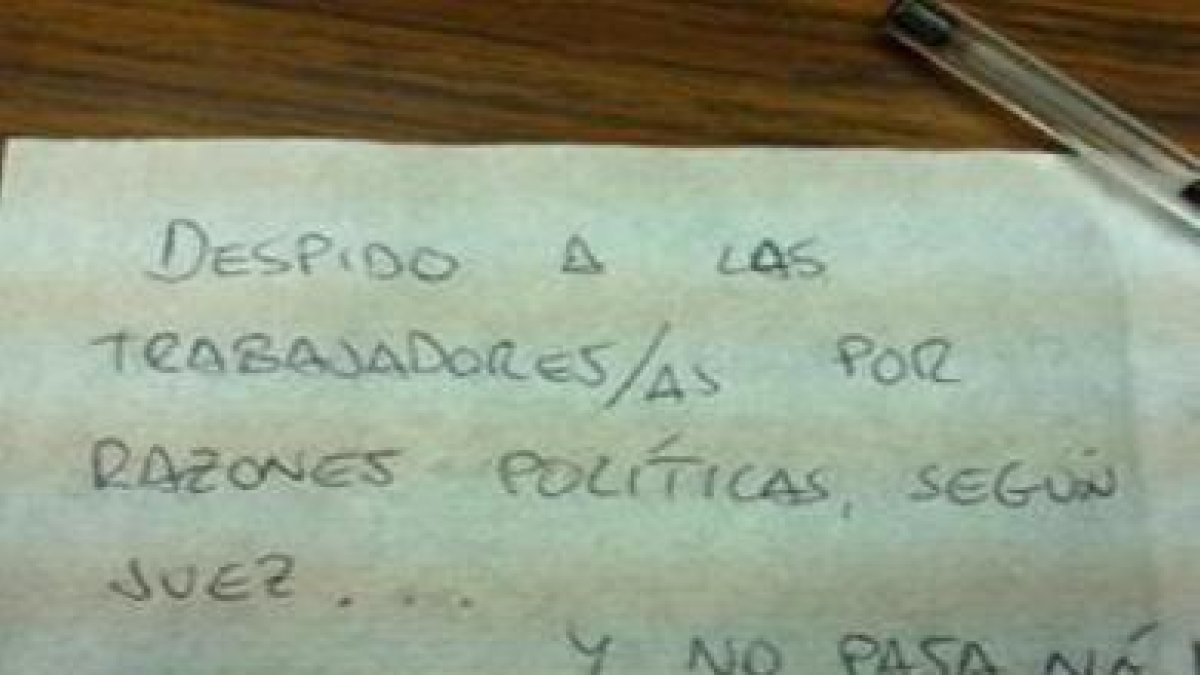 DESPIDO A LAS
TRABAJADORES/AS POR
RAZONES POLÍTICAS, SEGÚN
JUEZ...
Y NO PASA NÁ